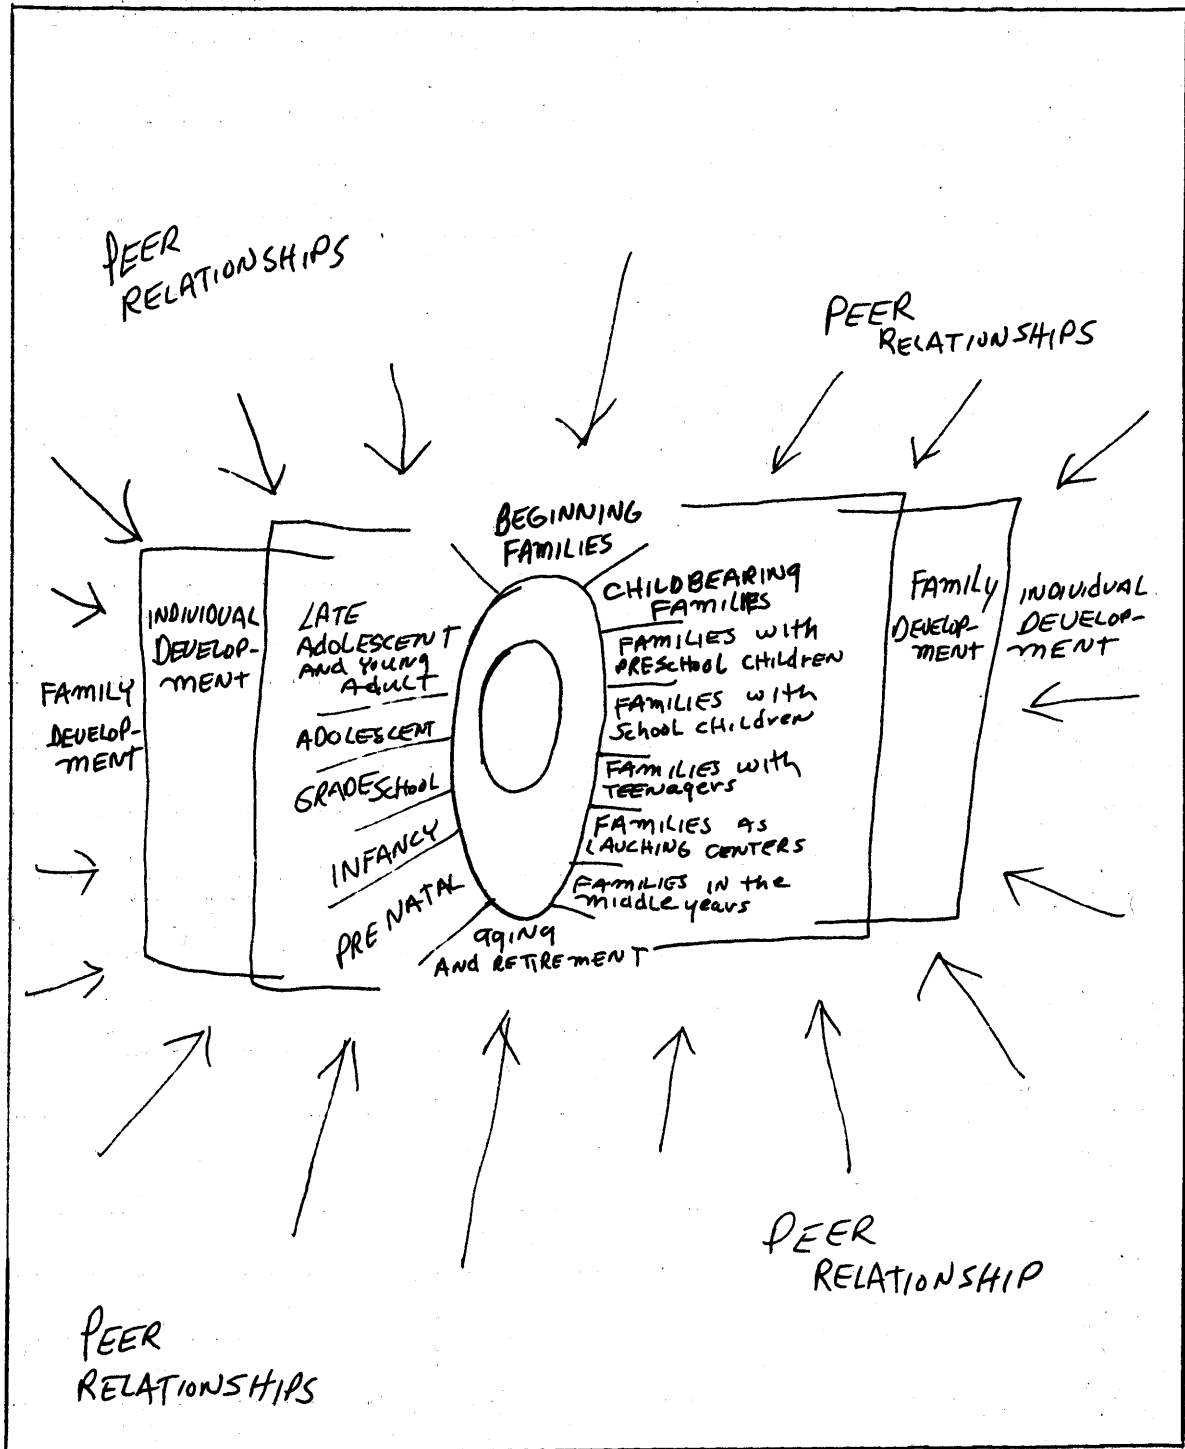 PEER
RELATIONSHIPS
PEER
RELATIONSHIPS
BEGINNING
FAMILIES
FAMILY
DEVELOP-
MENT
INDIVIDUAL
DEVELOP-
MENT
LATE
ADOLESCENT
AND YOUNG
ADULT
ADOLESCENT
GRADESCHOOL
INFANCY
PRENATAL
CHILDBEARING
FAMILIES
FAMILIES with
PRESCHOOL CHILDREN
FAMILIES with
School Children
FAMILIES with
TEENagers
FAMILIES AS
LAUCHING CENTERS
FAMILIES IN the
middle years
aging
AND RETIREMENT
FAMILY
DEVELOP-
MENT
INDIVIDUAL
DEVELOP-
MENT
PEER
RELATIONSHIP
PEER
RELATIONSHIPS